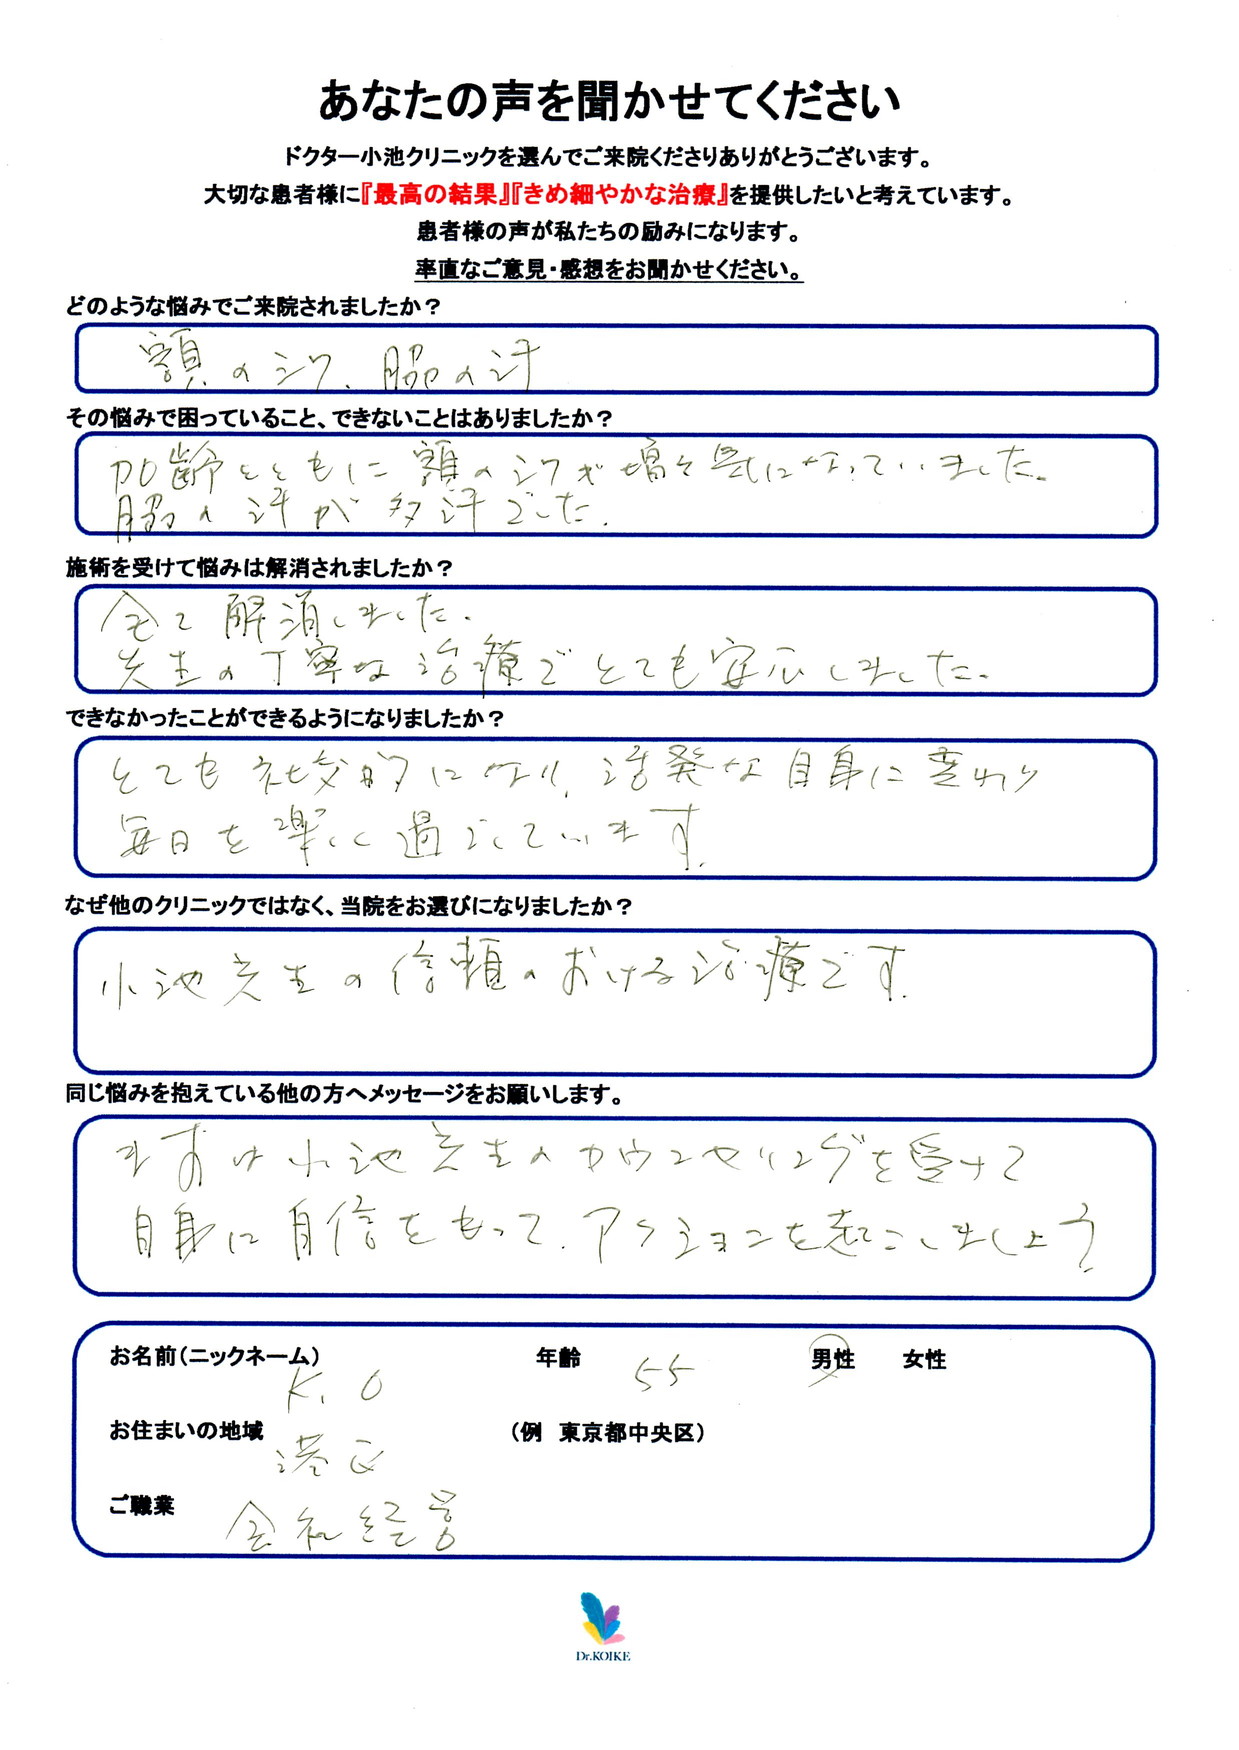 あなたの声を聞かせてください
ドクター小池クリニックを選んでご来院くださりありがとうございます。
大切な患者様に『最高の結果』『きめ細やかな治療』を提供したいと考えています。
患者様の声が私たちの励みになります。
率直なご意見・感想をお聞かせください。
どのような悩みでご来院されましたか？
額のシワ、脇の汗
その悩みで困っていること、できないことはありましたか？
加齢とともに額のシワが増々気になっていました。
脇の汗が多汗でした。
施術を受けて悩みは解消されましたか？
全て解消しました。
先生の丁寧な治療でとても安心しました。
できなかったことができるようになりましたか？
とても社交的になり、活発な自身に変わり
毎日を楽しく過ごしています。
なぜ他のクリニックではなく、当院をお選びになりましたか？
小池先生の信頼のおける治療です。
同じ悩みを抱えている他の方へメッセージをお願いします。
まずは小池先生のカウンセリングを受けて
自身に自信をもって、アクションを起こしましょう
お名前（ニックネーム） 年齢 55 男性 女性
K.O
お住まいの地域 （例 東京都中央区）
港区
ご職業
会社経営
Dr.KOIKE